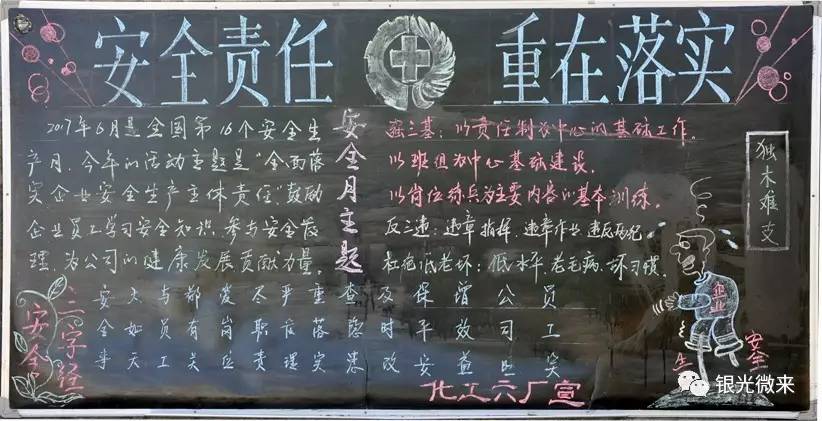 安全责任 重在落实
2017年6月是全国第16个安全生
产月,今年的活动主题是"全面落
实企业安全生产主体责任"鼓励
企业员工学习安全知识,参与安全管
理,为公司的健康发展贡献力量。
安全月主题
强三基:以责任制为中心的基础工作。
以班组为中心基础建设,
以岗位练兵为主要内容的基本训练。
反三违:违章指挥、违章作业、违反劳纪。
杜绝低老坏:低水平、老毛病、坏习惯。
独木难支
安全
三字经
安全事
大如天
与员工
都有关
爱岗位
尽职责
严管理
重落实
查隐患
及时改
保平安
增效益
公司
员工笑
企业
生
安全
化工六厂宣
银光微来